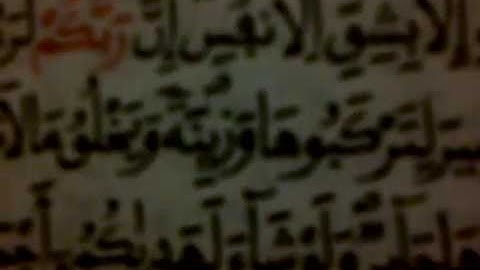 إِلَّا بِشِقِّ الْأَنْفُسِ إِنَّ رَبَّكُمْ
لِتَرْكَبُوهَا وَزِينَةً وَيَخْلُقُ مَا لَا
وَلَوْ شَاءَ لَهَدَاكُمْ